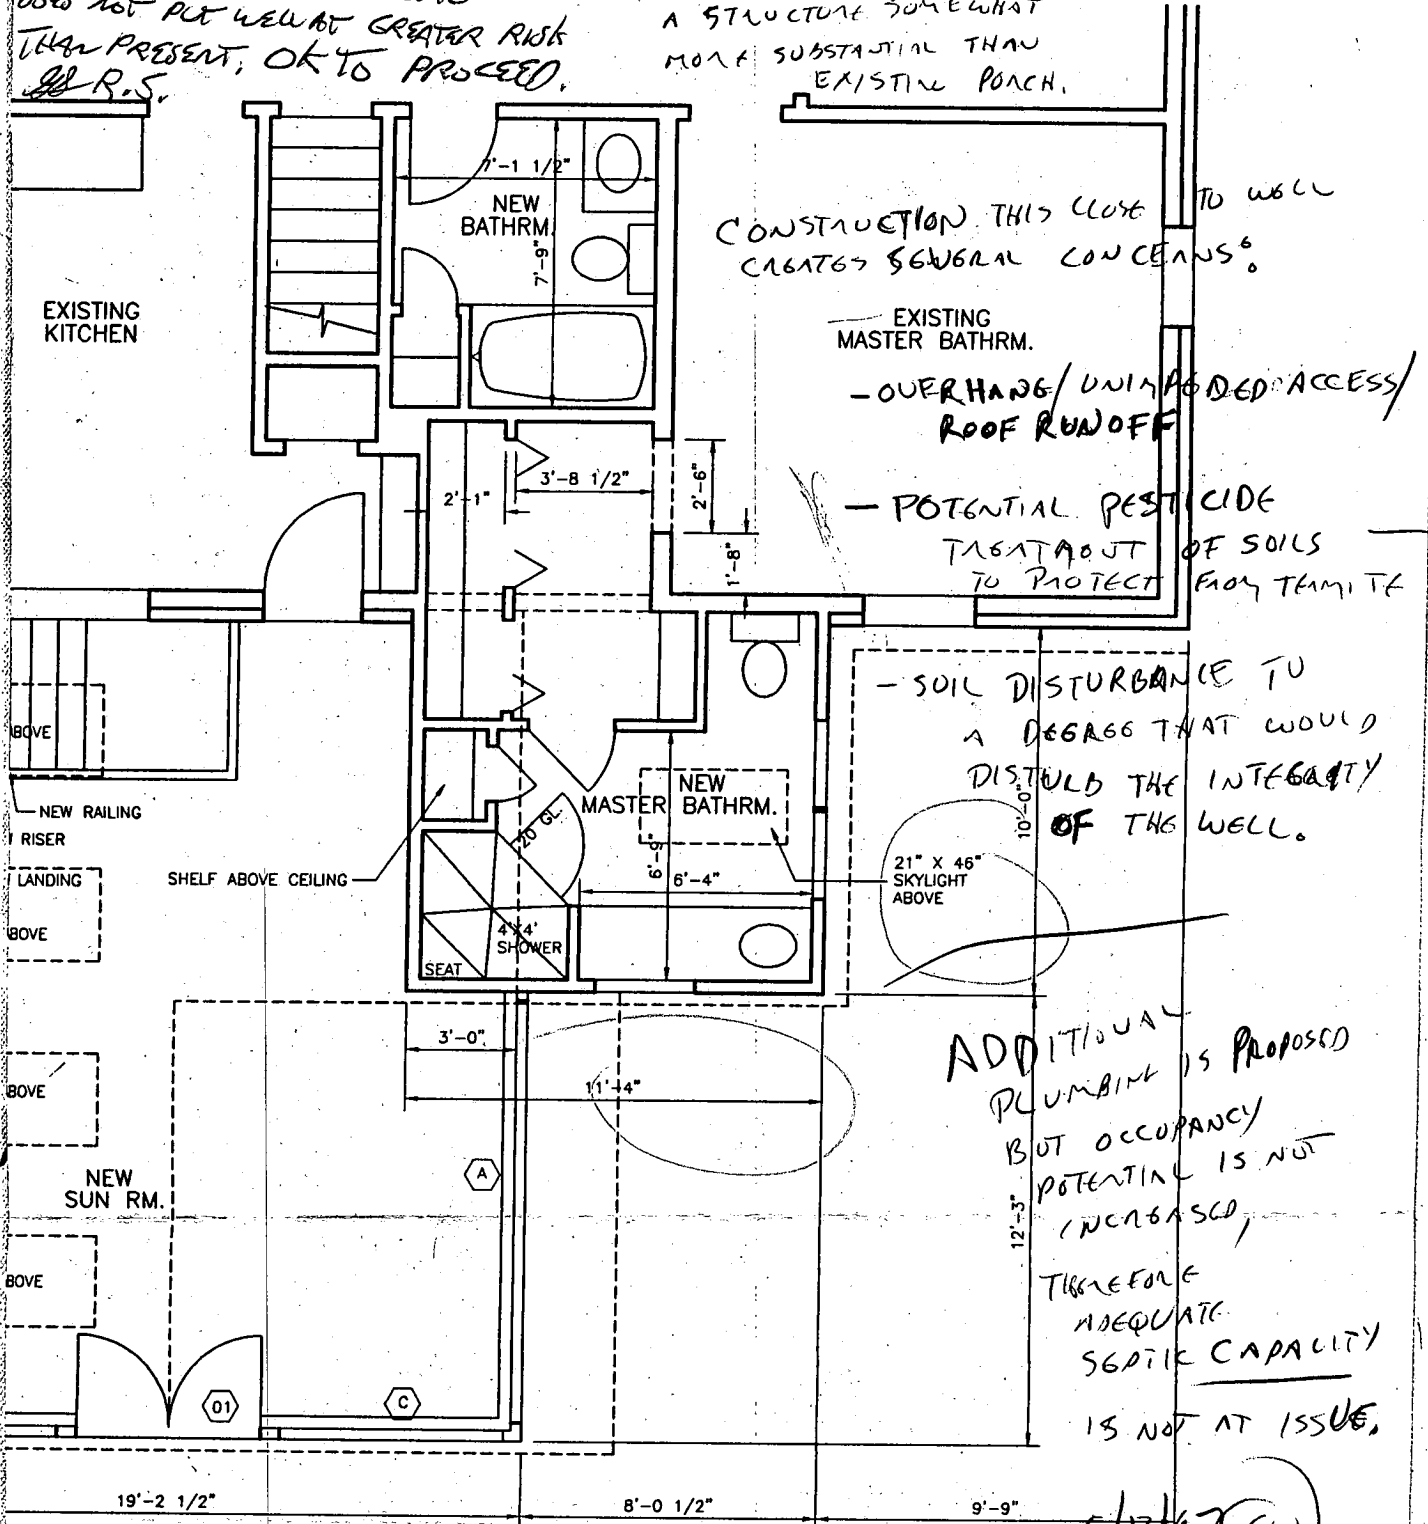 DOES NOT PUT WELL AT GREATER RISK
THAN PRESENT, OK TO PROCEED.
R.S.
A STRUCTURE SOMEWHAT
MORE SUBSTANTIAL THAN
EXISTING PORCH.
7'-1 1/2"
NEW
BATHRM.
7'-9"
EXISTING
KITCHEN
CONSTRUCTION THIS CLOSE TO WELL
CREATES SEVERAL CONCERNS:
EXISTING
MASTER BATHRM.
- OVERHANG/UNIMPEDED ACCESS/
ROOF RUNOFF
2'-1"
3'-8 1/2"
2'-6"
1'-8"
- POTENTIAL PESTICIDE
TREATMENT OF SOILS
TO PROTECT FROM TERMITE
- SOIL DISTURBANCE TO
A DEGREE THAT WOULD
DISTURB THE INTEGRITY
OF THE WELL.
10'-0"
BOVE
NEW RAILING
RISER
LANDING
BOVE
SHELF ABOVE CEILING
20 GL.
NEW
MASTER BATHRM.
6'-9"
6'-4"
21" X 46"
SKYLIGHT
ABOVE
4'X4'
SHOWER
SEAT
3'-0"
11'-4"
ADDITIONAL
PLUMBING IS PROPOSED
BUT OCCUPANCY
POTENTIAL IS NOT
INCREASED,
THEREFORE
ADEQUATE
SEPTIC CAPACITY
IS NOT AT ISSUE.
12'-3"
BOVE
A
NEW
SUN RM.
BOVE
01
C
19'-2 1/2"
8'-0 1/2"
9'-9"